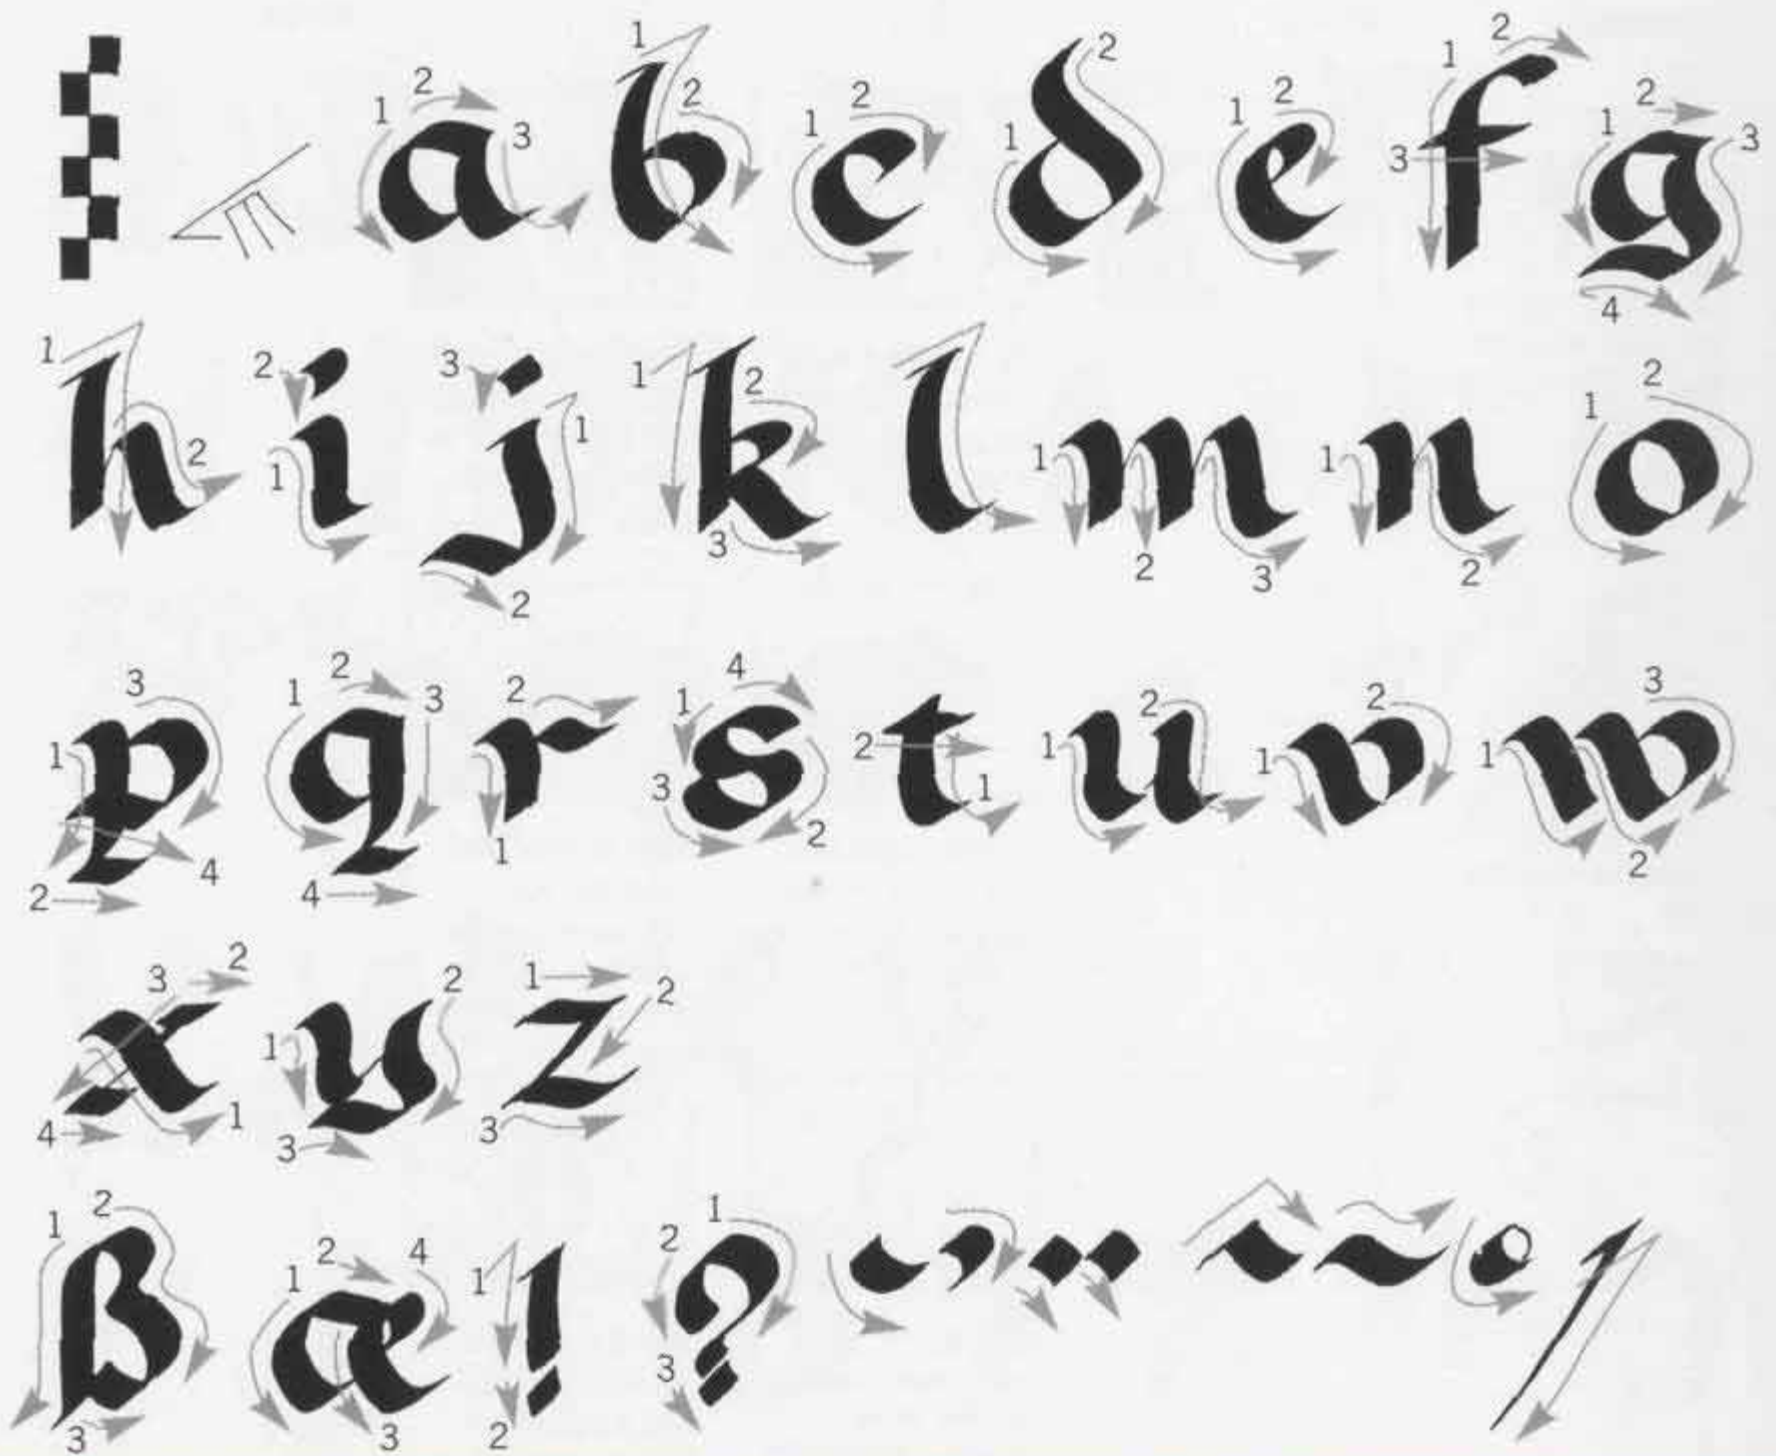 a b c d e f g
h i j k l m n o
p q r s t u v w
x y z
ß æ ! ? ˘ ’ ¨ ˇ ~ ° /